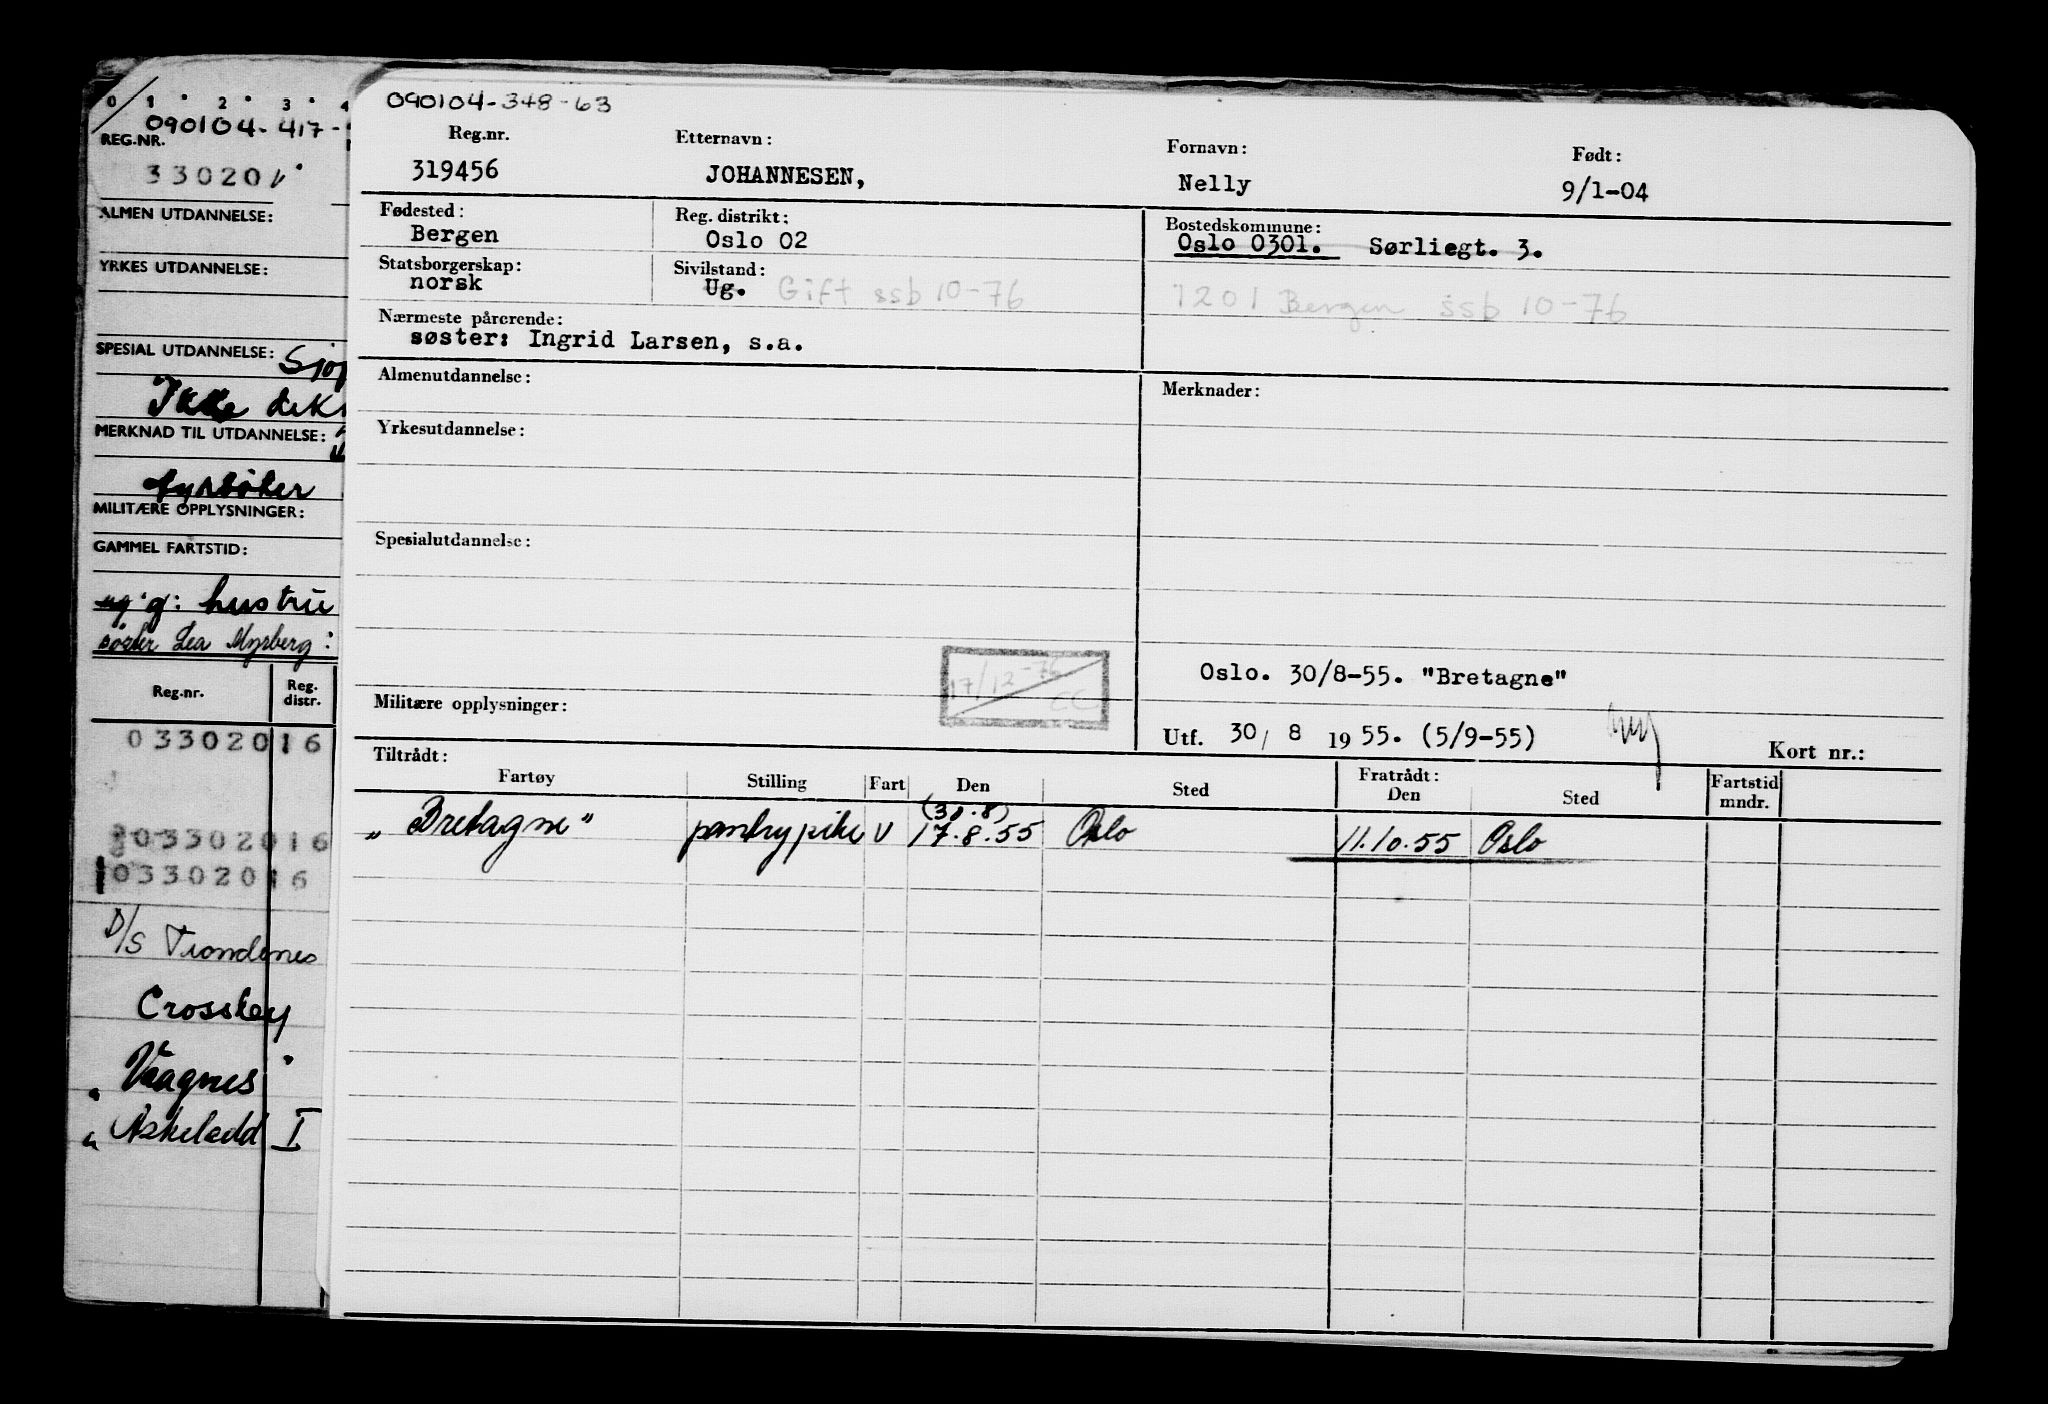 0 1 2 3 4
090104-417-
REG.NR.
330201
ALMEN UTDANNELSE:
YRKES UTDANNELSE:
SPESIAL UTDANNELSE:
Ikke
MERKNAD TIL UTDANNELSE:
fyrbøter
MILITÆRE OPPLYSNINGER:
GAMMEL FARTSTID:
ug. g: hustru
søster Lea Myrberg:
Reg.nr. Reg. distr.
03302016
03302016
03302016
D/S Trondenes
Crosskey
"Vaagnes"
" Askeladd I
090104-348-63
Reg.nr. Etternavn: Fornavn: Født:
319456 JOHANNESEN, Nelly 9/1-04
Fødested: Reg. distrikt: Bostedskommune:
Bergen Oslo 02 Oslo 0301. Sørliegt. 3.
Statsborgerskap: Sivilstand:
norsk Ug. Gift ssb 10-76 1201 Bergen ssb 10-76
Nærmeste pårørende:
søster: Ingrid Larsen, s.a.
Almenutdannelse: Merknader:
Yrkesutdannelse:
Spesialutdannelse:
17/12-76
CC
Oslo. 30/8-55. "Bretagne"
Militære opplysninger:
Utf. 30/ 8 19 55. (5/9-55) Kort nr.:
Tiltrådt: Fratrådt:
Fartøy Stilling Fart Den Sted Den Sted Fartstid mndr.
(30.8)
"Bretagne" pantrypike V 17.8.55 Oslo 11.10.55 Oslo